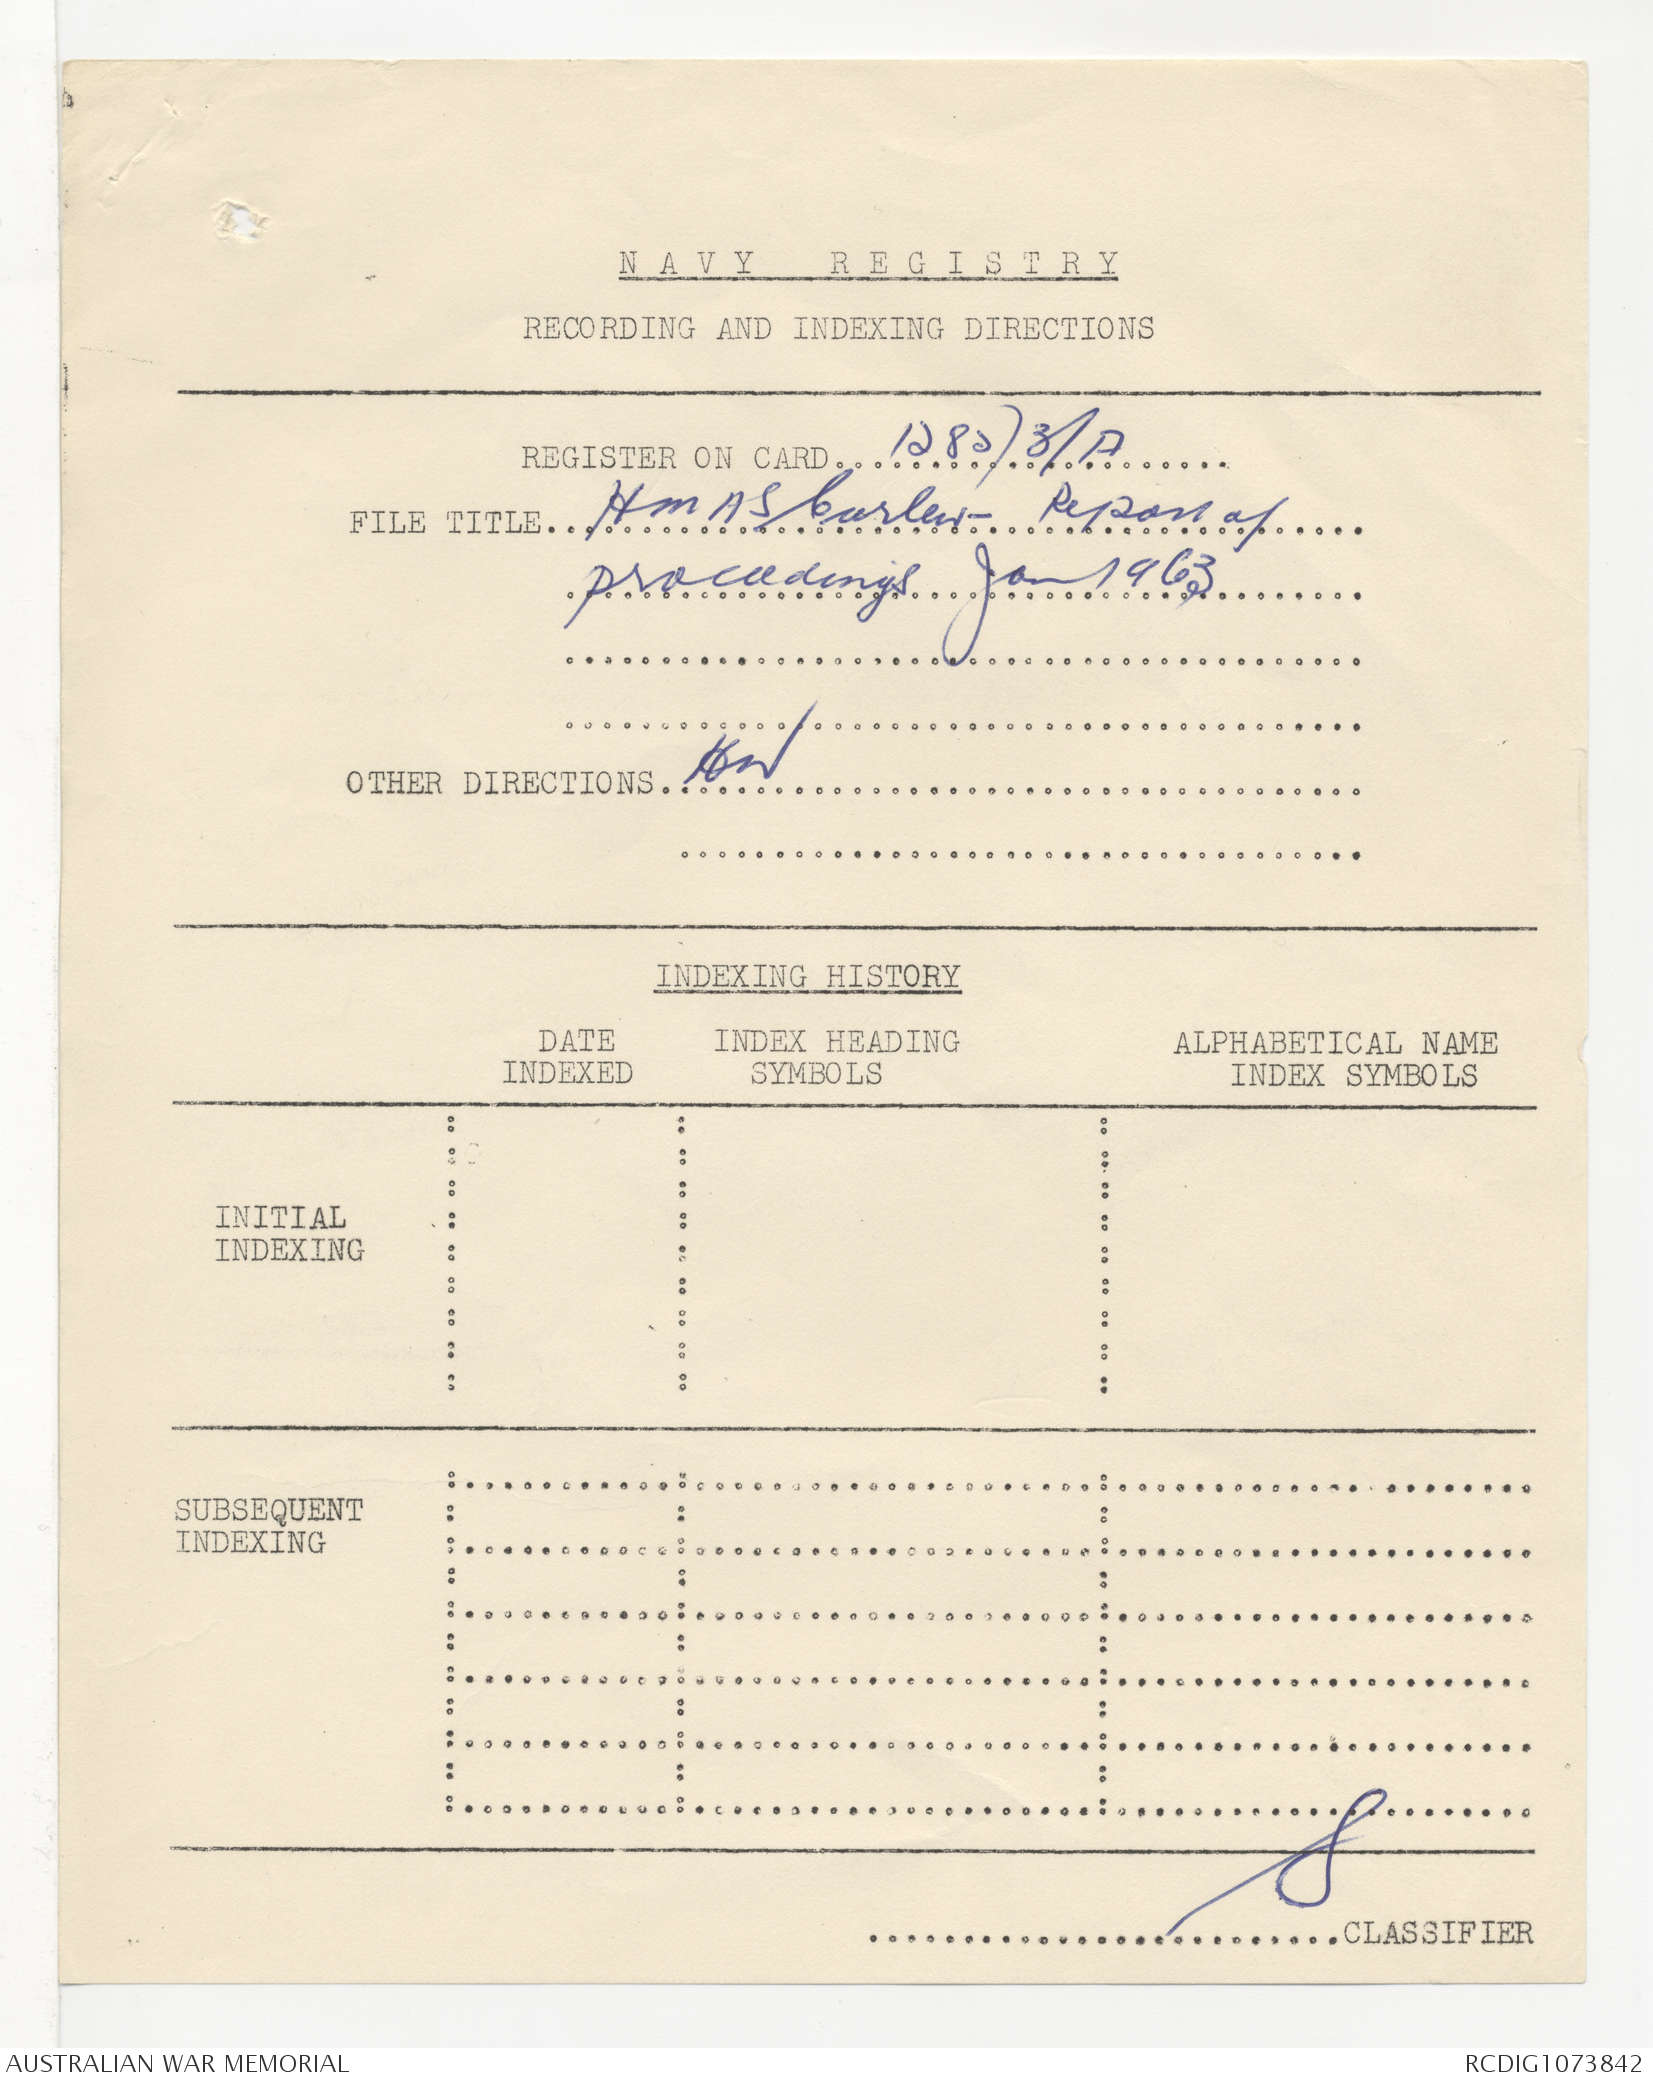 NAVY REGISTRY
RECORDING AND INDEXING DIRECTIONS
REGISTER ON CARD 1282/3/A
FILE TITLE HMAS Curlew - Report of
proceedings Jan 1963
OTHER DIRECTIONS
INDEXING HISTORY
DATE INDEXED INDEX HEADING SYMBOLS ALPHABETICAL NAME INDEX SYMBOLS
INITIAL
INDEXING
SUBSEQUENT
INDEXING
CLASSIFIER
AUSTRALIAN WAR MEMORIAL RCDIG1073842